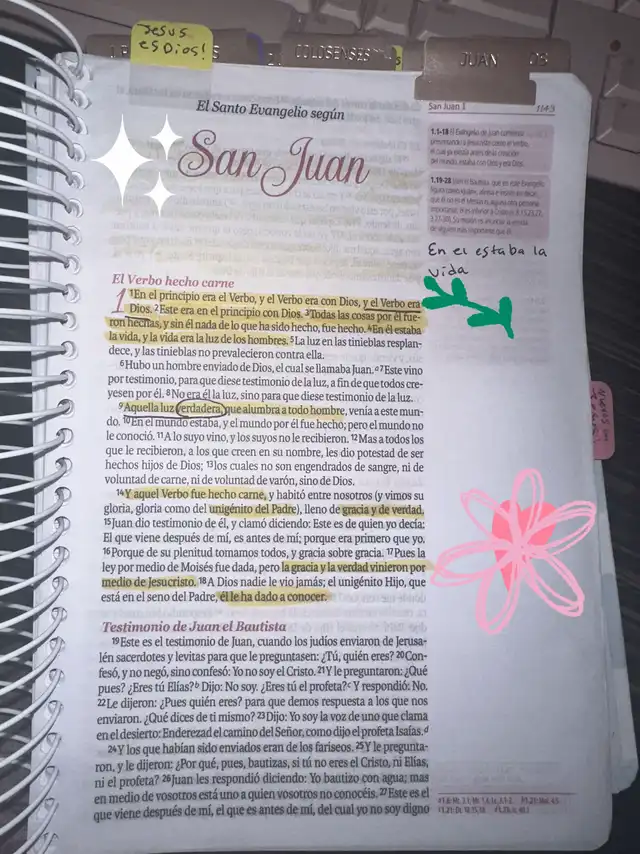 Jesus
es Dios!
COLOSENSES
JUAN
San Juan 1
1143
El Santo Evangelio según
San Juan
1.1-18 El Evangelio de Juan comienza
presentando a Jesucristo como el Verbo,
el cual ya estaba antes de la creación
del mundo, estaba con Dios y era Dios.
En el estaba la
vida
El Verbo hecho carne
1 1En el principio era el Verbo, y el Verbo era con Dios, y el Verbo era
Dios. 2Este era en el principio con Dios. 3Todas las cosas por él fue-
ron hechas, y sin él nada de lo que ha sido hecho, fue hecho. 4En él estaba
la vida, y la vida era la luz de los hombres. 5La luz en las tinieblas resplan-
dece, y las tinieblas no prevalecieron contra ella.
6Hubo un hombre enviado de Dios, el cual se llamaba Juan. a7Este vino
por testimonio, para que diese testimonio de la luz, a fin de que todos cre-
yesen por él. 8No era él la luz, sino para que diese testimonio de la luz.
9Aquella luz verdadera, que alumbra a todo hombre, venía a este mun-
do. 10En el mundo estaba, y el mundo por él fue hecho; pero el mundo no
le conoció. 11A lo suyo vino, y los suyos no le recibieron. 12Mas a todos los
que le recibieron, a los que creen en su nombre, les dio potestad de ser
hechos hijos de Dios; 13los cuales no son engendrados de sangre, ni de
voluntad de carne, ni de voluntad de varón, sino de Dios.
14Y aquel Verbo fue hecho carne, y habitó entre nosotros (y vimos su
gloria, gloria como del unigénito del Padre), lleno de gracia y de verdad.
15Juan dio testimonio de él, y clamó diciendo: Este es de quien yo decía:
El que viene después de mí, es antes de mí; porque era primero que yo.
16Porque de su plenitud tomamos todos, y gracia sobre gracia. 17Pues la
ley por medio de Moisés fue dada, pero la gracia y la verdad vinieron por
medio de Jesucristo. 18A Dios nadie le vio jamás; el unigénito Hijo, que
está en el seno del Padre, él le ha dado a conocer.
Testimonio de Juan el Bautista
19Este es el testimonio de Juan, cuando los judíos enviaron de Jerusa-
lén sacerdotes y levitas para que le preguntasen: ¿Tú, quién eres? 20Con-
fesó, y no negó, sino confesó: Yo no soy el Cristo. 21Y le preguntaron: ¿Qué
pues? ¿Eres tú Elías?b Dijo: No soy. ¿Eres tú el profeta?c Y respondió: No.
22Le dijeron: ¿Pues quién eres? para que demos respuesta a los que nos
enviaron. ¿Qué dices de ti mismo? 23Dijo: Yo soy la voz de uno que clama
en el desierto: Enderezad el camino del Señor, como dijo el profeta Isaías.d
24Y los que habían sido enviados eran de los fariseos. 25Y le pregunta-
ron, y le dijeron: ¿Por qué, pues, bautizas, si tú no eres el Cristo, ni Elías,
ni el profeta? 26Juan les respondió diciendo: Yo bautizo con agua; mas
en medio de vosotros está uno a quien vosotros no conocéis. 27Este es el
que viene después de mí, el que es antes de mí, del cual yo no soy digno